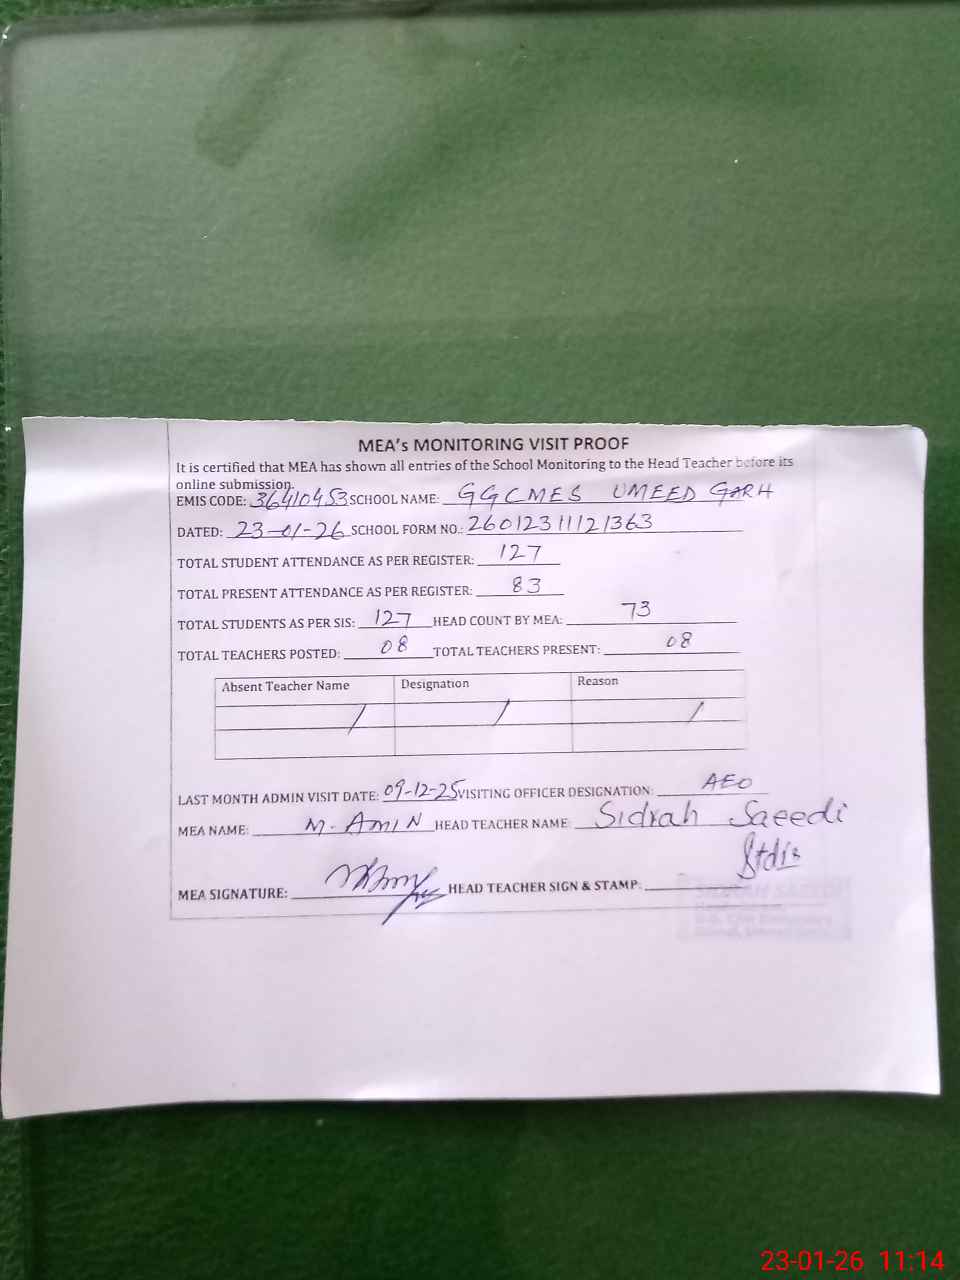 MEA's MONITORING VISIT PROOF
It is certified that MEA has shown all entries of the School Monitoring to the Head Teacher before its
online submission.
EMIS CODE: 36410453 SCHOOL NAME: GGCMES UMEED GARH
DATED: 23-01-26 SCHOOL FORM NO.: 26012311121363
TOTAL STUDENT ATTENDANCE AS PER REGISTER: 127
TOTAL PRESENT ATTENDANCE AS PER REGISTER: 83
TOTAL STUDENTS AS PER SIS: 127 HEAD COUNT BY MEA: 73
TOTAL TEACHERS POSTED: 08 TOTAL TEACHERS PRESENT: 08
Absent Teacher Name Designation Reason
/ / /
LAST MONTH ADMIN VISIT DATE: 09-12-25 VISITING OFFICER DESIGNATION: AEO
MEA NAME: M. AMIN HEAD TEACHER NAME: Sidrah Saeedi
MEA SIGNATURE: HEAD TEACHER SIGN & STAMP:
SIDRAH SAEEDI
23-01-26 11:14